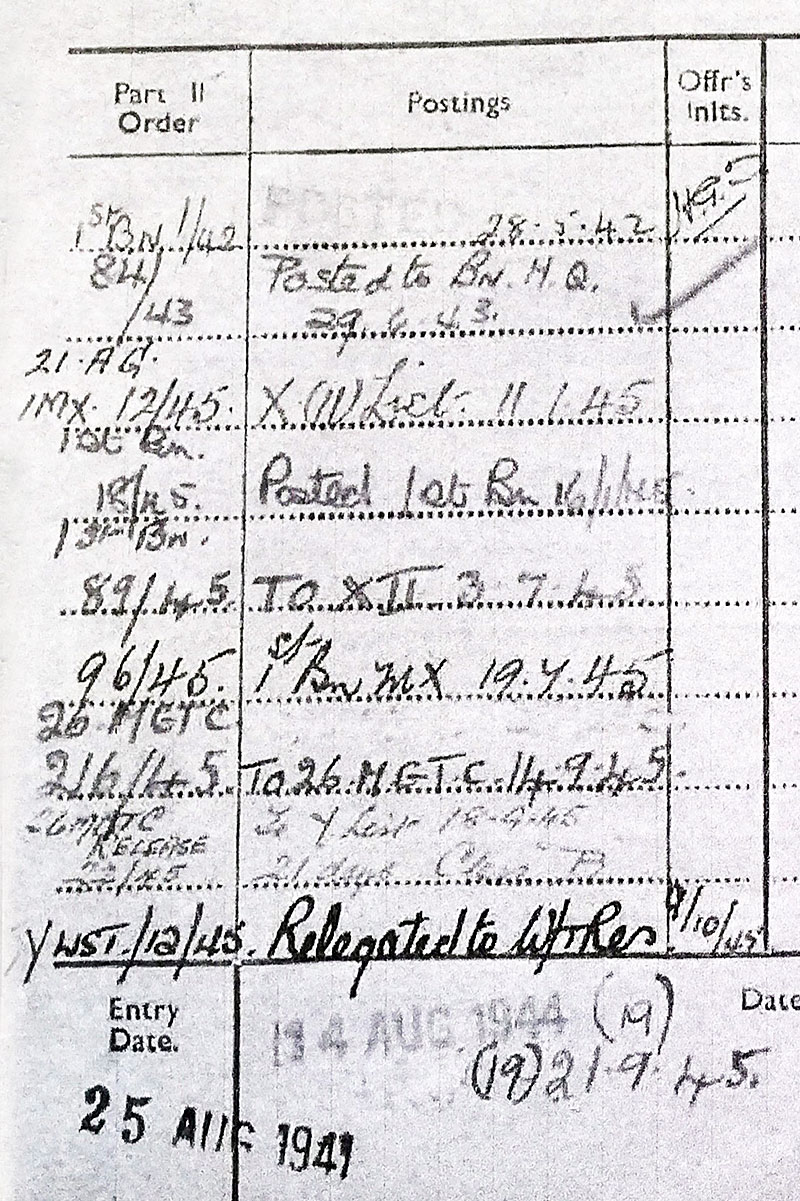 Part II Order
Postings
Offr's Inlts.
1st Bn 1/42
28.5.42
84/43
Posted to Bn. H.Q.
29.6.43.
21.AG.
1MX. 12/45.
X (IV) List. 11.1.45
1st Bn.
18/45.
Posted 1st Bn 16/1/45.
1st Bn.
89/45.
To XII 3.7.45
96/45.
1st Bn MX 19.7.45
26 METC
216/45
To 26 METC. 14.9.45.
RELEASE
Y List 18.9.45
22/45
21 days Class A
Y LIST./12/45.
Relegated to W/Res
9/10/45
Entry Date.
14 AUG 1944 (19)
Date
(19) 21.9.45.
25 AUG 1941